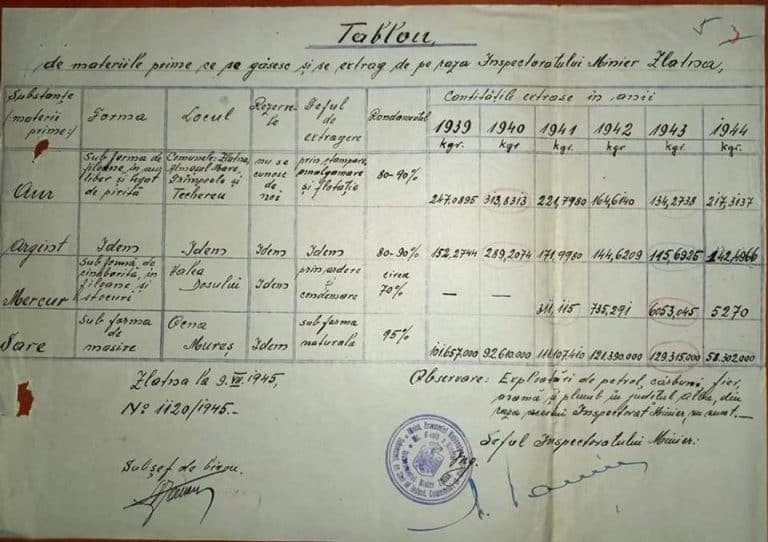 5 3
Tablou,
de materiile prime ce se găsesc și se extrag de pe raza Inspectoratului Minier Zlatna,
Substanțe (materii prime:) Forma Locul Rezerve-le Șeful de extragere Randamentul Cantitățile extrase în anii
1939 kgr. 1940 kgr. 1941 kgr. 1942 kgr. 1943 kgr. 1944 kgr.
Aur
Sub forma de
filoane, în aur
liber și legat
de pirită
Comunele: Zlatna,
Almașul Mare,
Techereu
nu se
cunosc
de
noi
prin ștampare,
amalgamare
și flotație
80-90%
247,0895 313,8313 221,7980 164,6140 134,2738 217,3137
Argint Idem Idem Idem Idem 80-90% 152,2744 289,2074 171,9980 144,6209 115,6925 142,4966
Mercur
Sub formă de
cinabarită, în
filoane și
stocuri
Valea
Dosului
Idem
prin ardere
și
condensare
circa
70%
— — 311,115 735,291 6053,045 5270
Sare
Sub forma
de
masive
Ocna
Mureș
Idem
sub forma
naturală
95%
101.657.000 92.610.000 111.107.410 121.390.000 129.315.000 58.302.000
Zlatna la 9.VII.1945,
Nº 1120/1945.-
Observare: Exploatări de petrol, cărbuni, fier,
aramă și plumb în județul Alba, din
raza acestui Inspectorat Minier, nu sunt.—
Șeful Inspectoratului Minier:
Ing.
Subșef de birou.